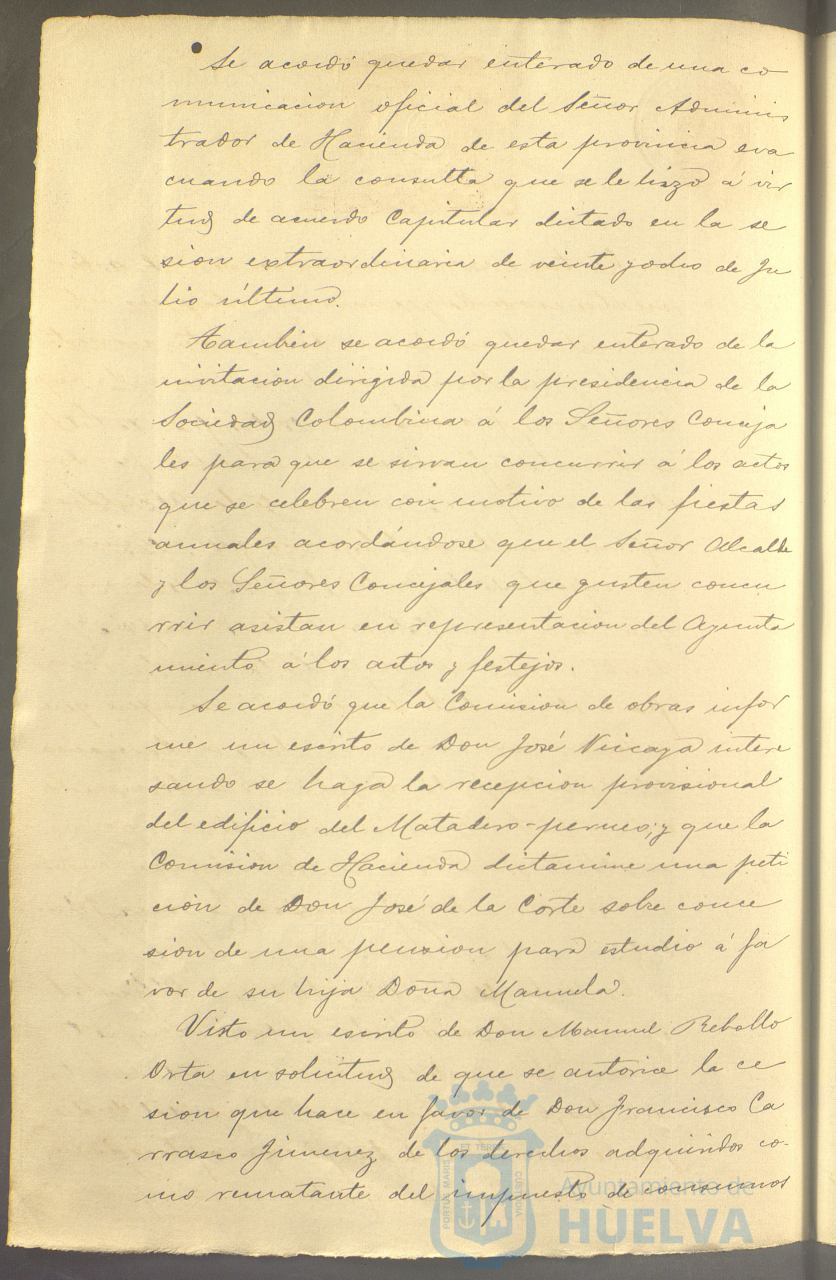 Se acordó quedar enterado de una co
municacion oficial del Señor Adminis
trador de Hacienda de esta provincia eva
cuando la consulta que se le hizo á vir
tud de acuerdo Capitular dictado en la se
sion extraordinaria de veinte y ocho de Ju
lio último.
Tambien se acordó quedar enterado de la
invitacion dirigida por la presidencia de la
Sociedad Colombina á los Señores Conceja
les para que se sirvan concurrir á los actos
que se celebren con motivo de las fiestas
anuales acordándose que el Señor Alcalde
y los Señores Concejales que gusten concu
rrir asistan en representacion del Ayunta
miento á los actos y festejos.
Se acordó que la Comision de obras infor
me un escrito de Don José Vizcaya intere
sando se haga la recepcion provisional
del edificio del Matadero-perneo; y que la
Comision de Hacienda dictamine una peti
ción de Don José de la Corte sobre conce
sion de una pension para estudio á fa
vor de su hija Doña Manuela.
Visto un escrito de Don Manuel Rebollo
Orta en solicitud de que se autorice la ce
sion que hace en favor de Don Francisco Ca
rrasco Jimenez de los derechos adquiridos co-
mo rematante del impuesto de consumos
PORTUS MARIS ET TERRE CUSTODIA
Ayuntamiento de
HUELVA